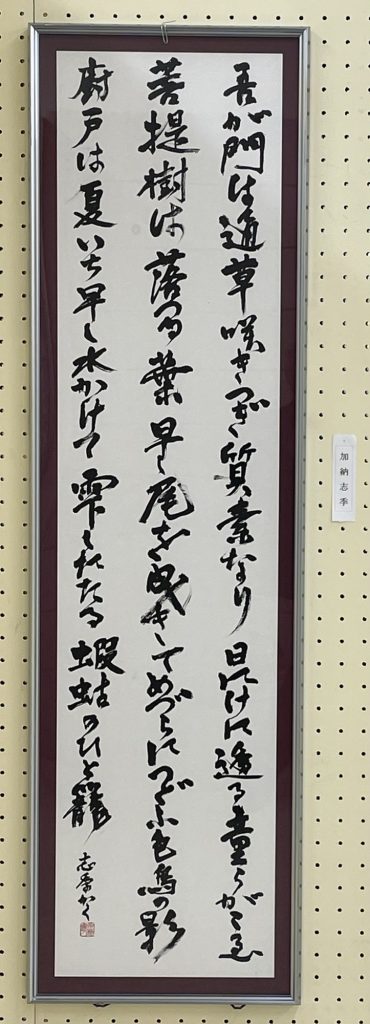 吾が門は通草咲きつぎ質素なり日にけに透る童らがこゑ
菩提樹は落つる葉早し尾を曳きてめづらにつどふ色鳥の影
廚戸は夏いち早し水かけて雫したたる蝦蛄のひと籠
志季かく
加納志季